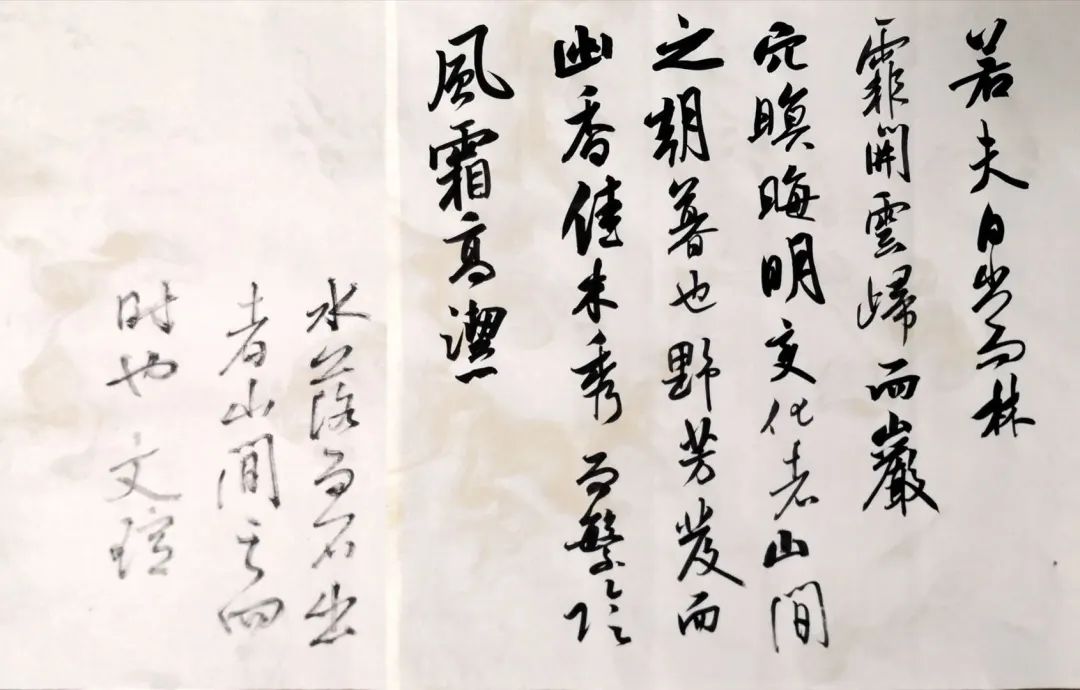 若夫日出而林
霏開雲歸而巖
穴暝晦明变化者山間
之朝暮也野芳發而
幽香佳木秀而繁陰
風霜高潔
水落而石出
者山間之四
时也文